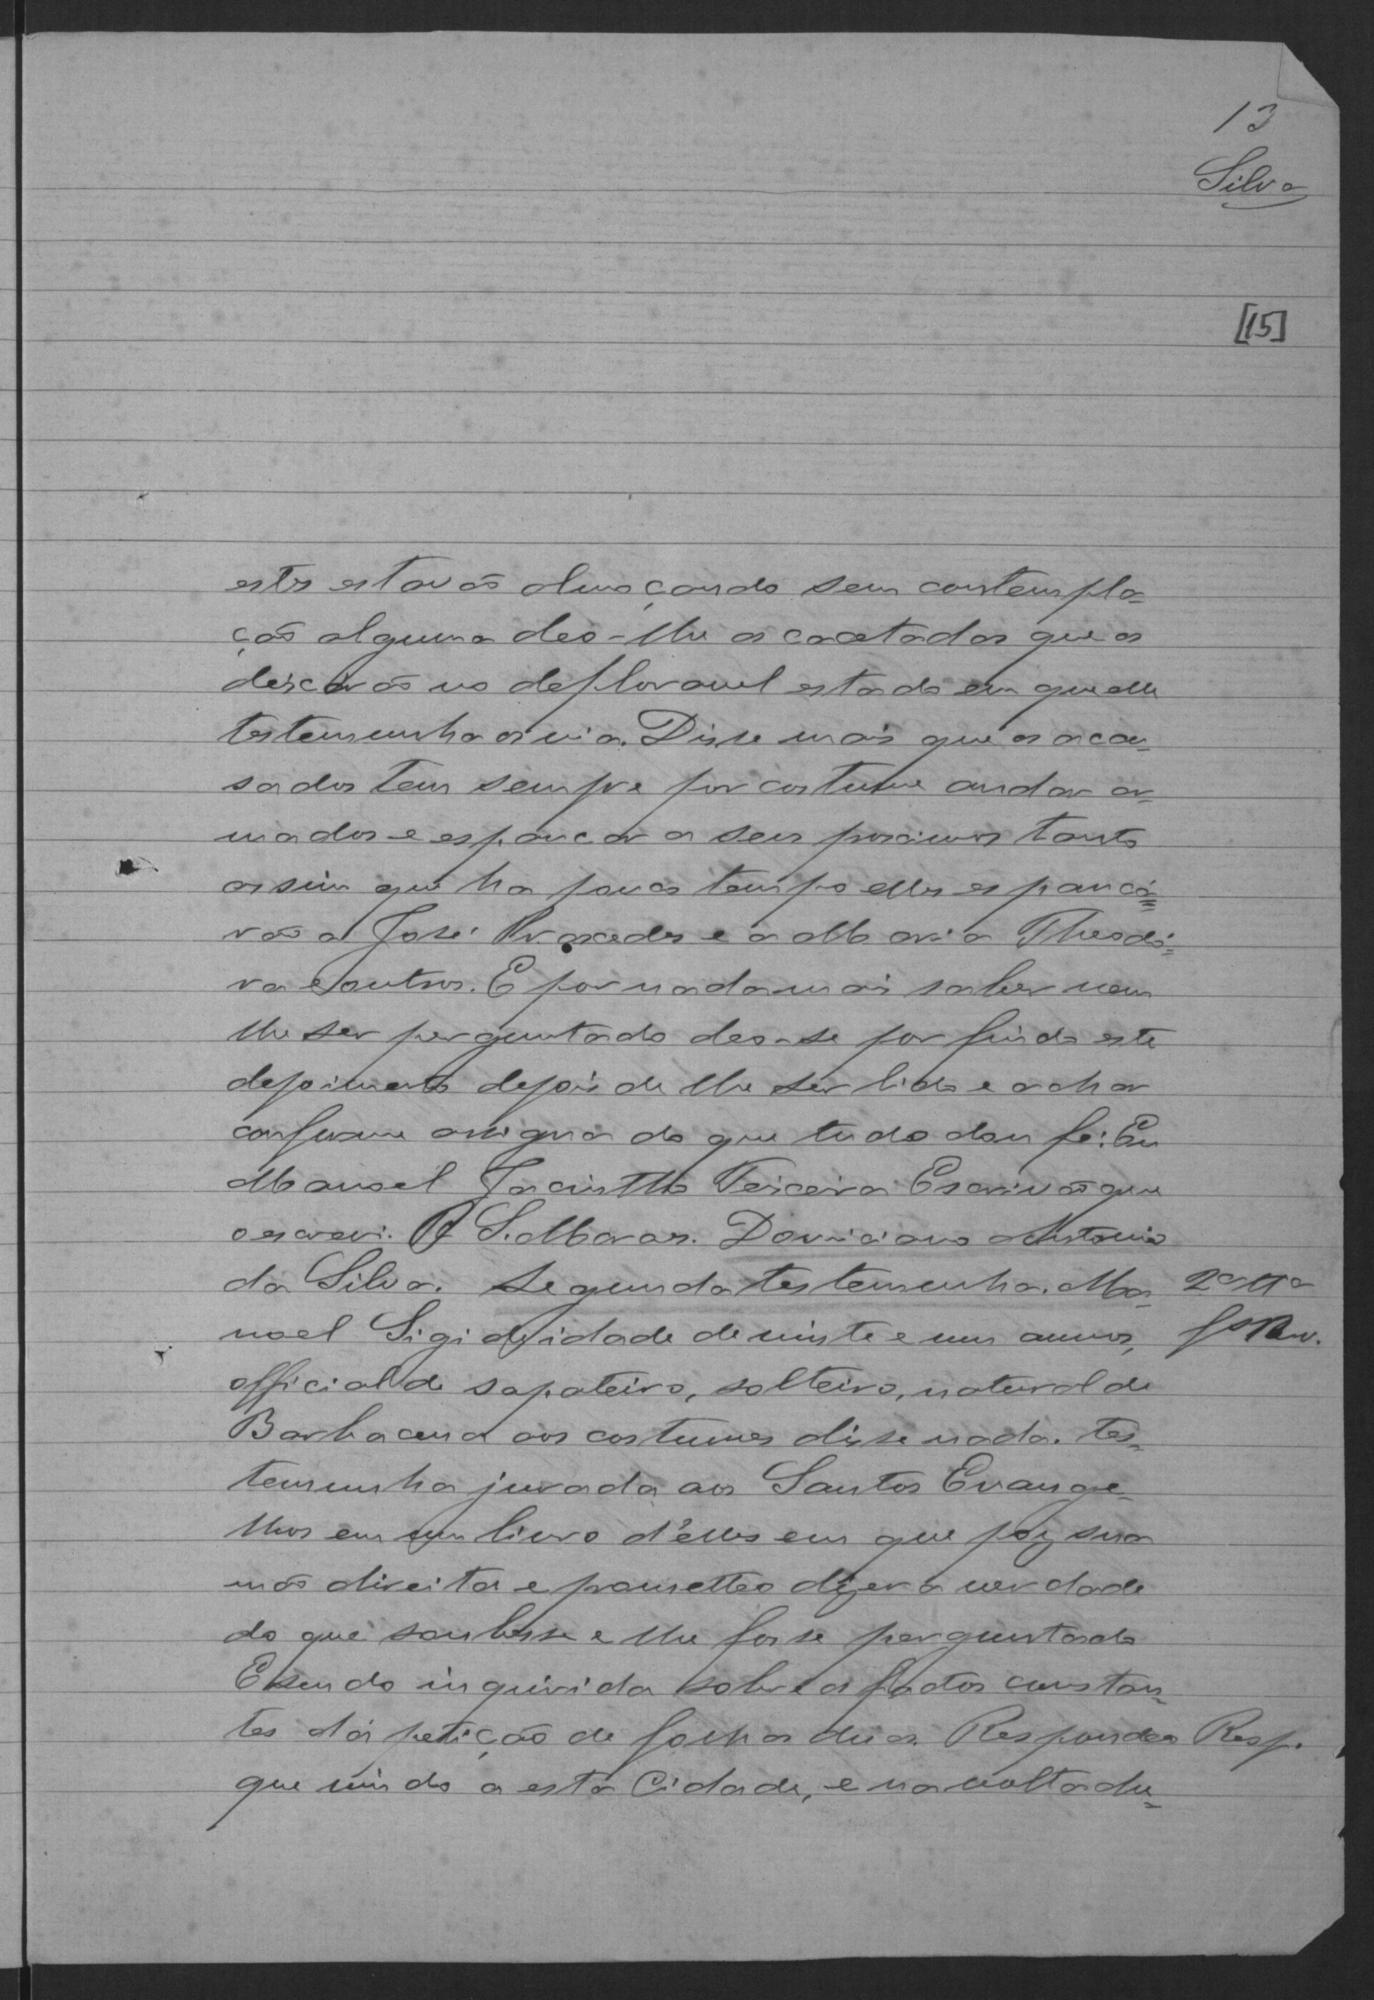 13
Silva
[15]
estes estavão almoçando sem contempla=
ção alguma deo-lhe as cacetadas que os
deixarão no deploravel estado em que elle
testemunha os via. Disse mais que os accu=
sados tem sempre por costume andar ar=
mados e espancar a seus proximos tanto
assim que ha pouco tempo elles espancá=
rão a José Praxedes e a Maria Theodó=
ra e outros. E por nada mais saber nem
lhe ser perguntado deo-se por findo este
depoimento depois de lhe ser lido e achar
conforme assigna do que tudo dou fé: Eu
Manoel Jacintho Teixeira Escrivão que
o escrevi. S. Moraes. Domiciano Antonio
da Silva. Segunda testemunha. Ma= 2ª Tª
noel Sigi de idade de vinte e um annos,
official de sapateiro, solteiro, natural de
Barbacena aos costumes disse nada. tes=
temunha jurada aos Santos Evange=
lhos em um livro d'elles em que poz sua
mão direita e prometteo dizer a verdade
do que soubesse e lhe fosse perguntado
E sendo inquirida sobre os factos constan=
tes da petição de folhas duas. Respondeo Resp.
que vindo a esta Cidade, e na volta de=